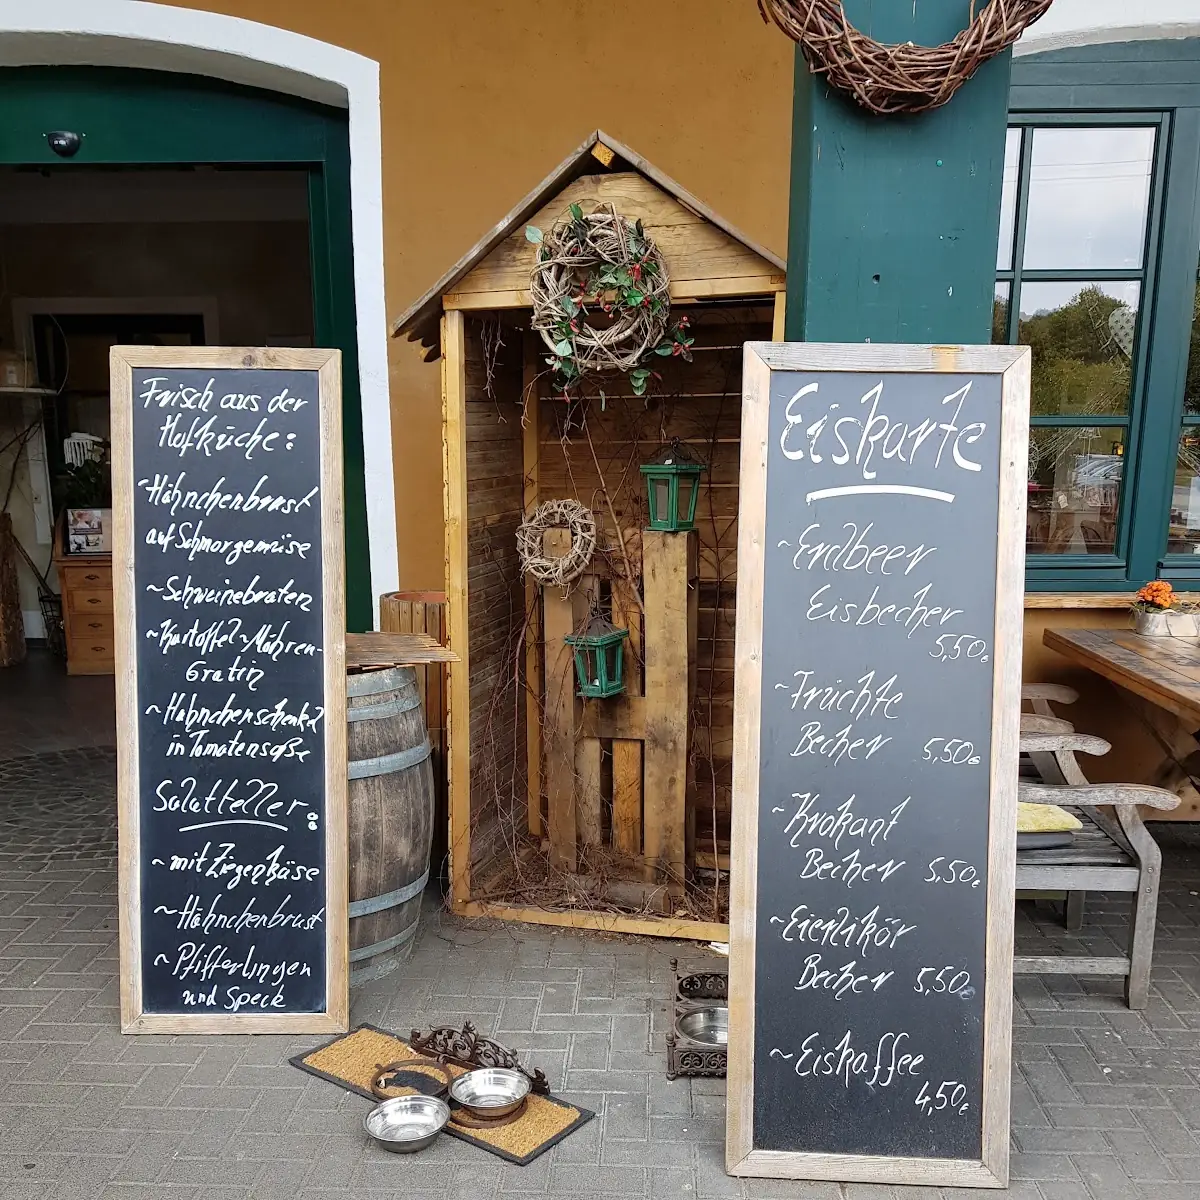 Frisch aus der
Hofküche:
~Hähnchenbrust
auf Schmorgemüse
~Schweinebraten
~Kartoffel~Möhren-
Gratin
~Hähnchenschenkel
in Tomatensoße
Salatteller:
~mit Ziegenkäse
~Hähnchenbrust
~Pfifferlingen
und Speck
Eiskarte
~Erdbeer
Eisbecher
5,50€
~Früchte
Becher 5,50€
~Krokant
Becher 5,50€
~Eierlikör
Becher 5,50€
~Eiskaffee
4,50€